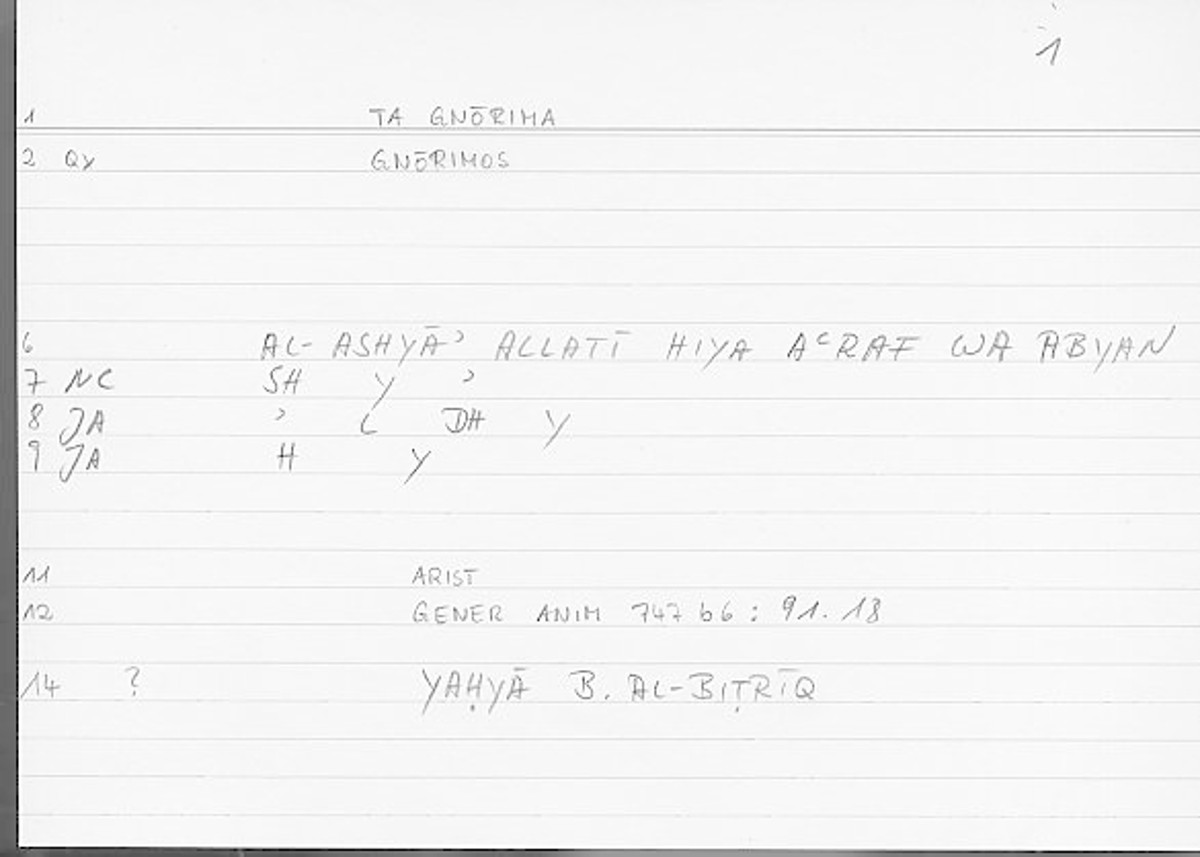 1
1 TA GNŌRIMA
2 Qy GNŌRIMOS
6 AL- ASHYĀʾ ALLATĪ HIYA AʿRAF WA ABYAN
7 NC SH Y ʾ
8 JA ʾ L DH Y
9 JA H Y
11 ARIST
12 GENER ANIM 747 b6 : 91.18
14 ? YAḤYĀ B. AL-BIṬRĪQ